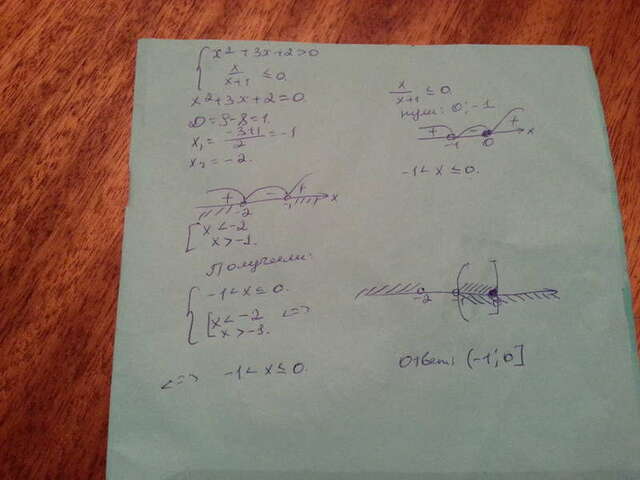 { x² + 3x + 2 > 0
x/(x+1) ≤ 0.
x² + 3x + 2 = 0.
D = 9 - 8 = 1.
x₁ = (-3+1)/2 = -1
x₂ = -2.
+ - + x
-2 -1
[ x < -2
x > -1.
Получили:
{ -1 < x ≤ 0.
[ x < -2 <=>
x > -1.
<=> -1 < x ≤ 0.
x/(x+1) ≤ 0
нули: 0; -1
+ - + x
-1 0
-1 < x ≤ 0.
-2
Ответ: (-1; 0]